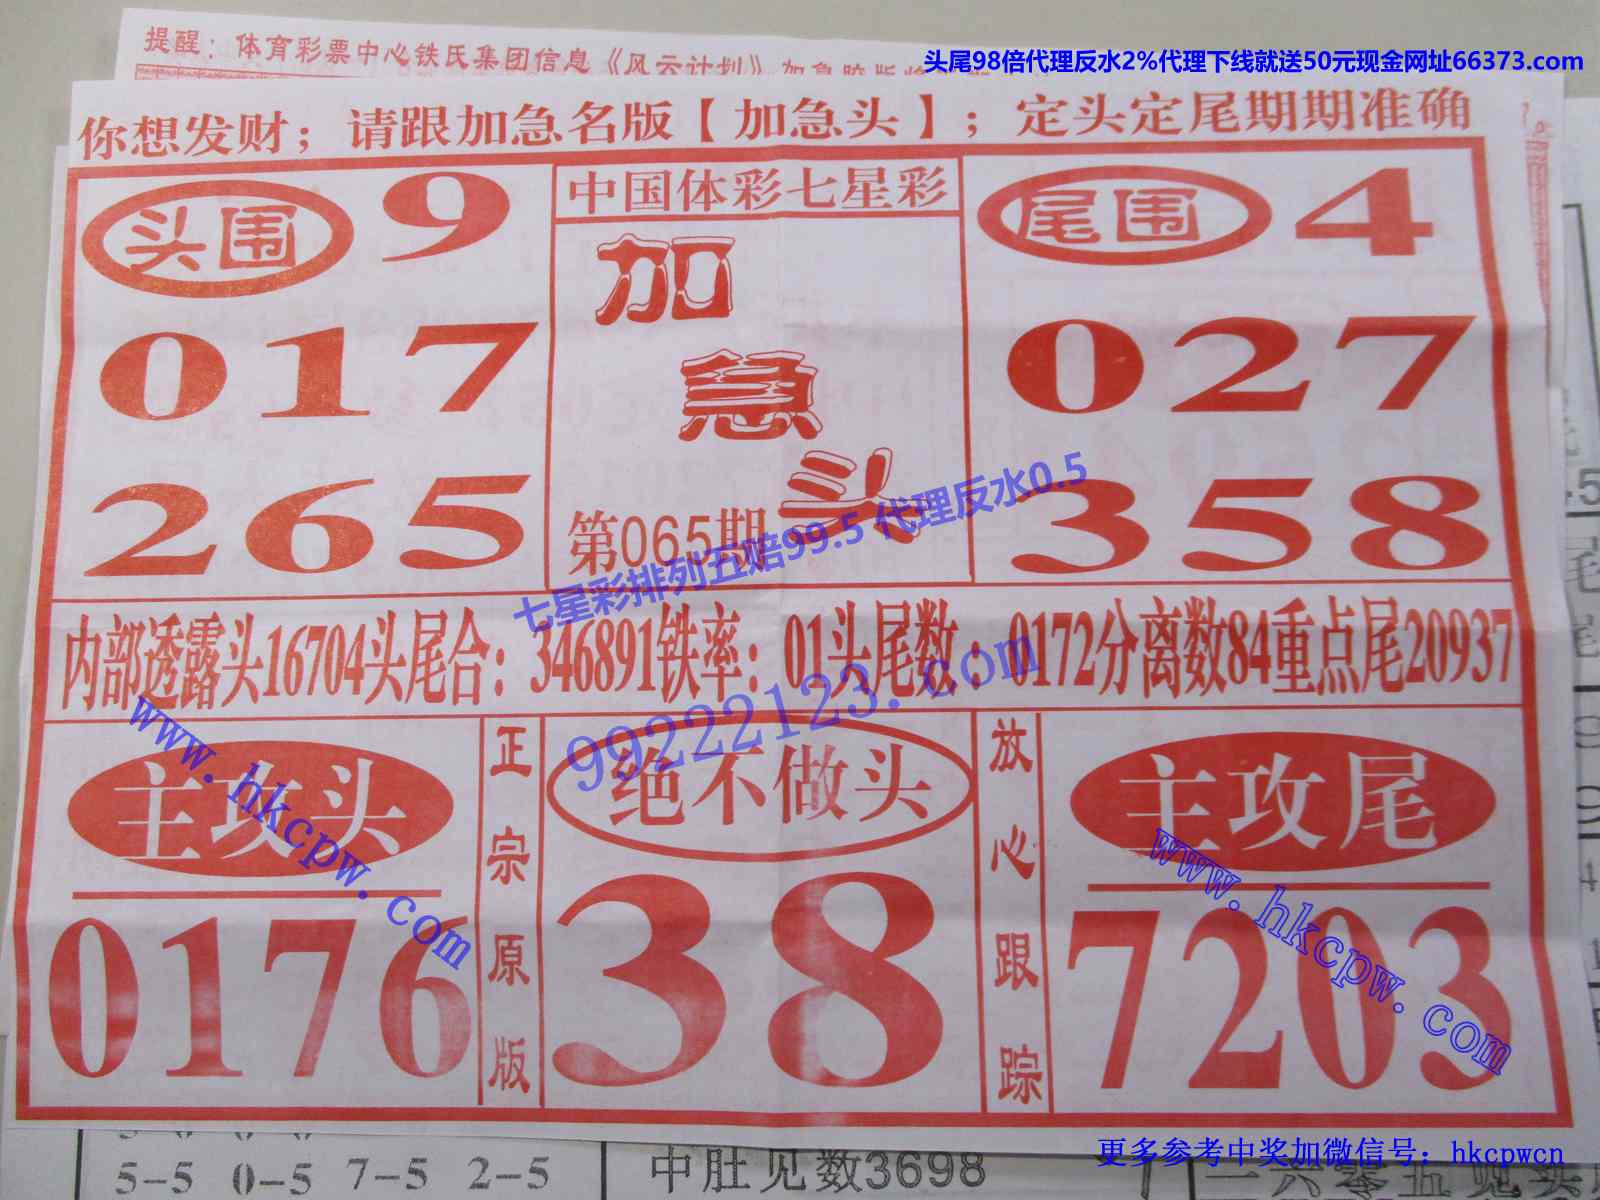 提醒：体育彩票中心铁氏集团信息《风云计划》
头尾98倍代理反水2%代理下线就送50元现金网址66373.com
你想发财；请跟加急名版【加急头】；定头定尾期期准确
头围 9
017
265
中国体彩七星彩
加
急
头
第065期
尾围 4
027
358
七星彩排列五赔99.5 代理反水0.5
内部透露头16704头尾合：346891铁率：01头尾数：0172分离数84重点尾20937
99222123.com
主攻头
0176
www.hkcpw.com
正宗原版
绝不做头
38
放心跟踪
主攻尾
7203
www.hkcpw.com
5-5 0-5 7-5 2-5
中肚见数3698
更多参考中奖加微信号：hkcpwcn